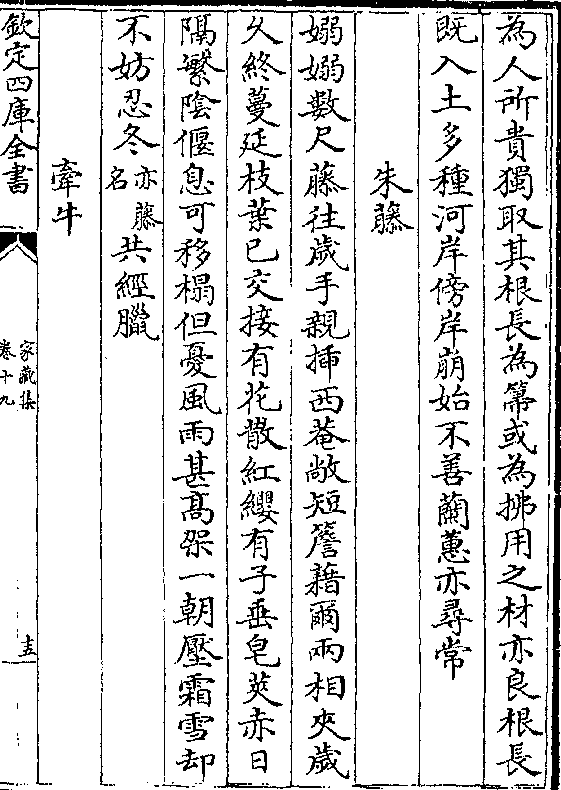 為人所貴獨取其根長為箒或為拂用之材亦良根長
既入土多種河岸傍岸崩始不善蘭蕙亦尋常
朱藤
嫋嫋數尺藤往歲手親挿西菴敞短簷藉爾兩相夾歲
久終蔓延枝葉已交接有花散紅纓有子垂皂莢赤日
隔繁陰偃息可移榻但憂風雨甚髙架一朝壓霜雪却
不妨忍冬亦藤名共經臘
牽牛
欽定四庫全書
家藏集
卷十九
十五